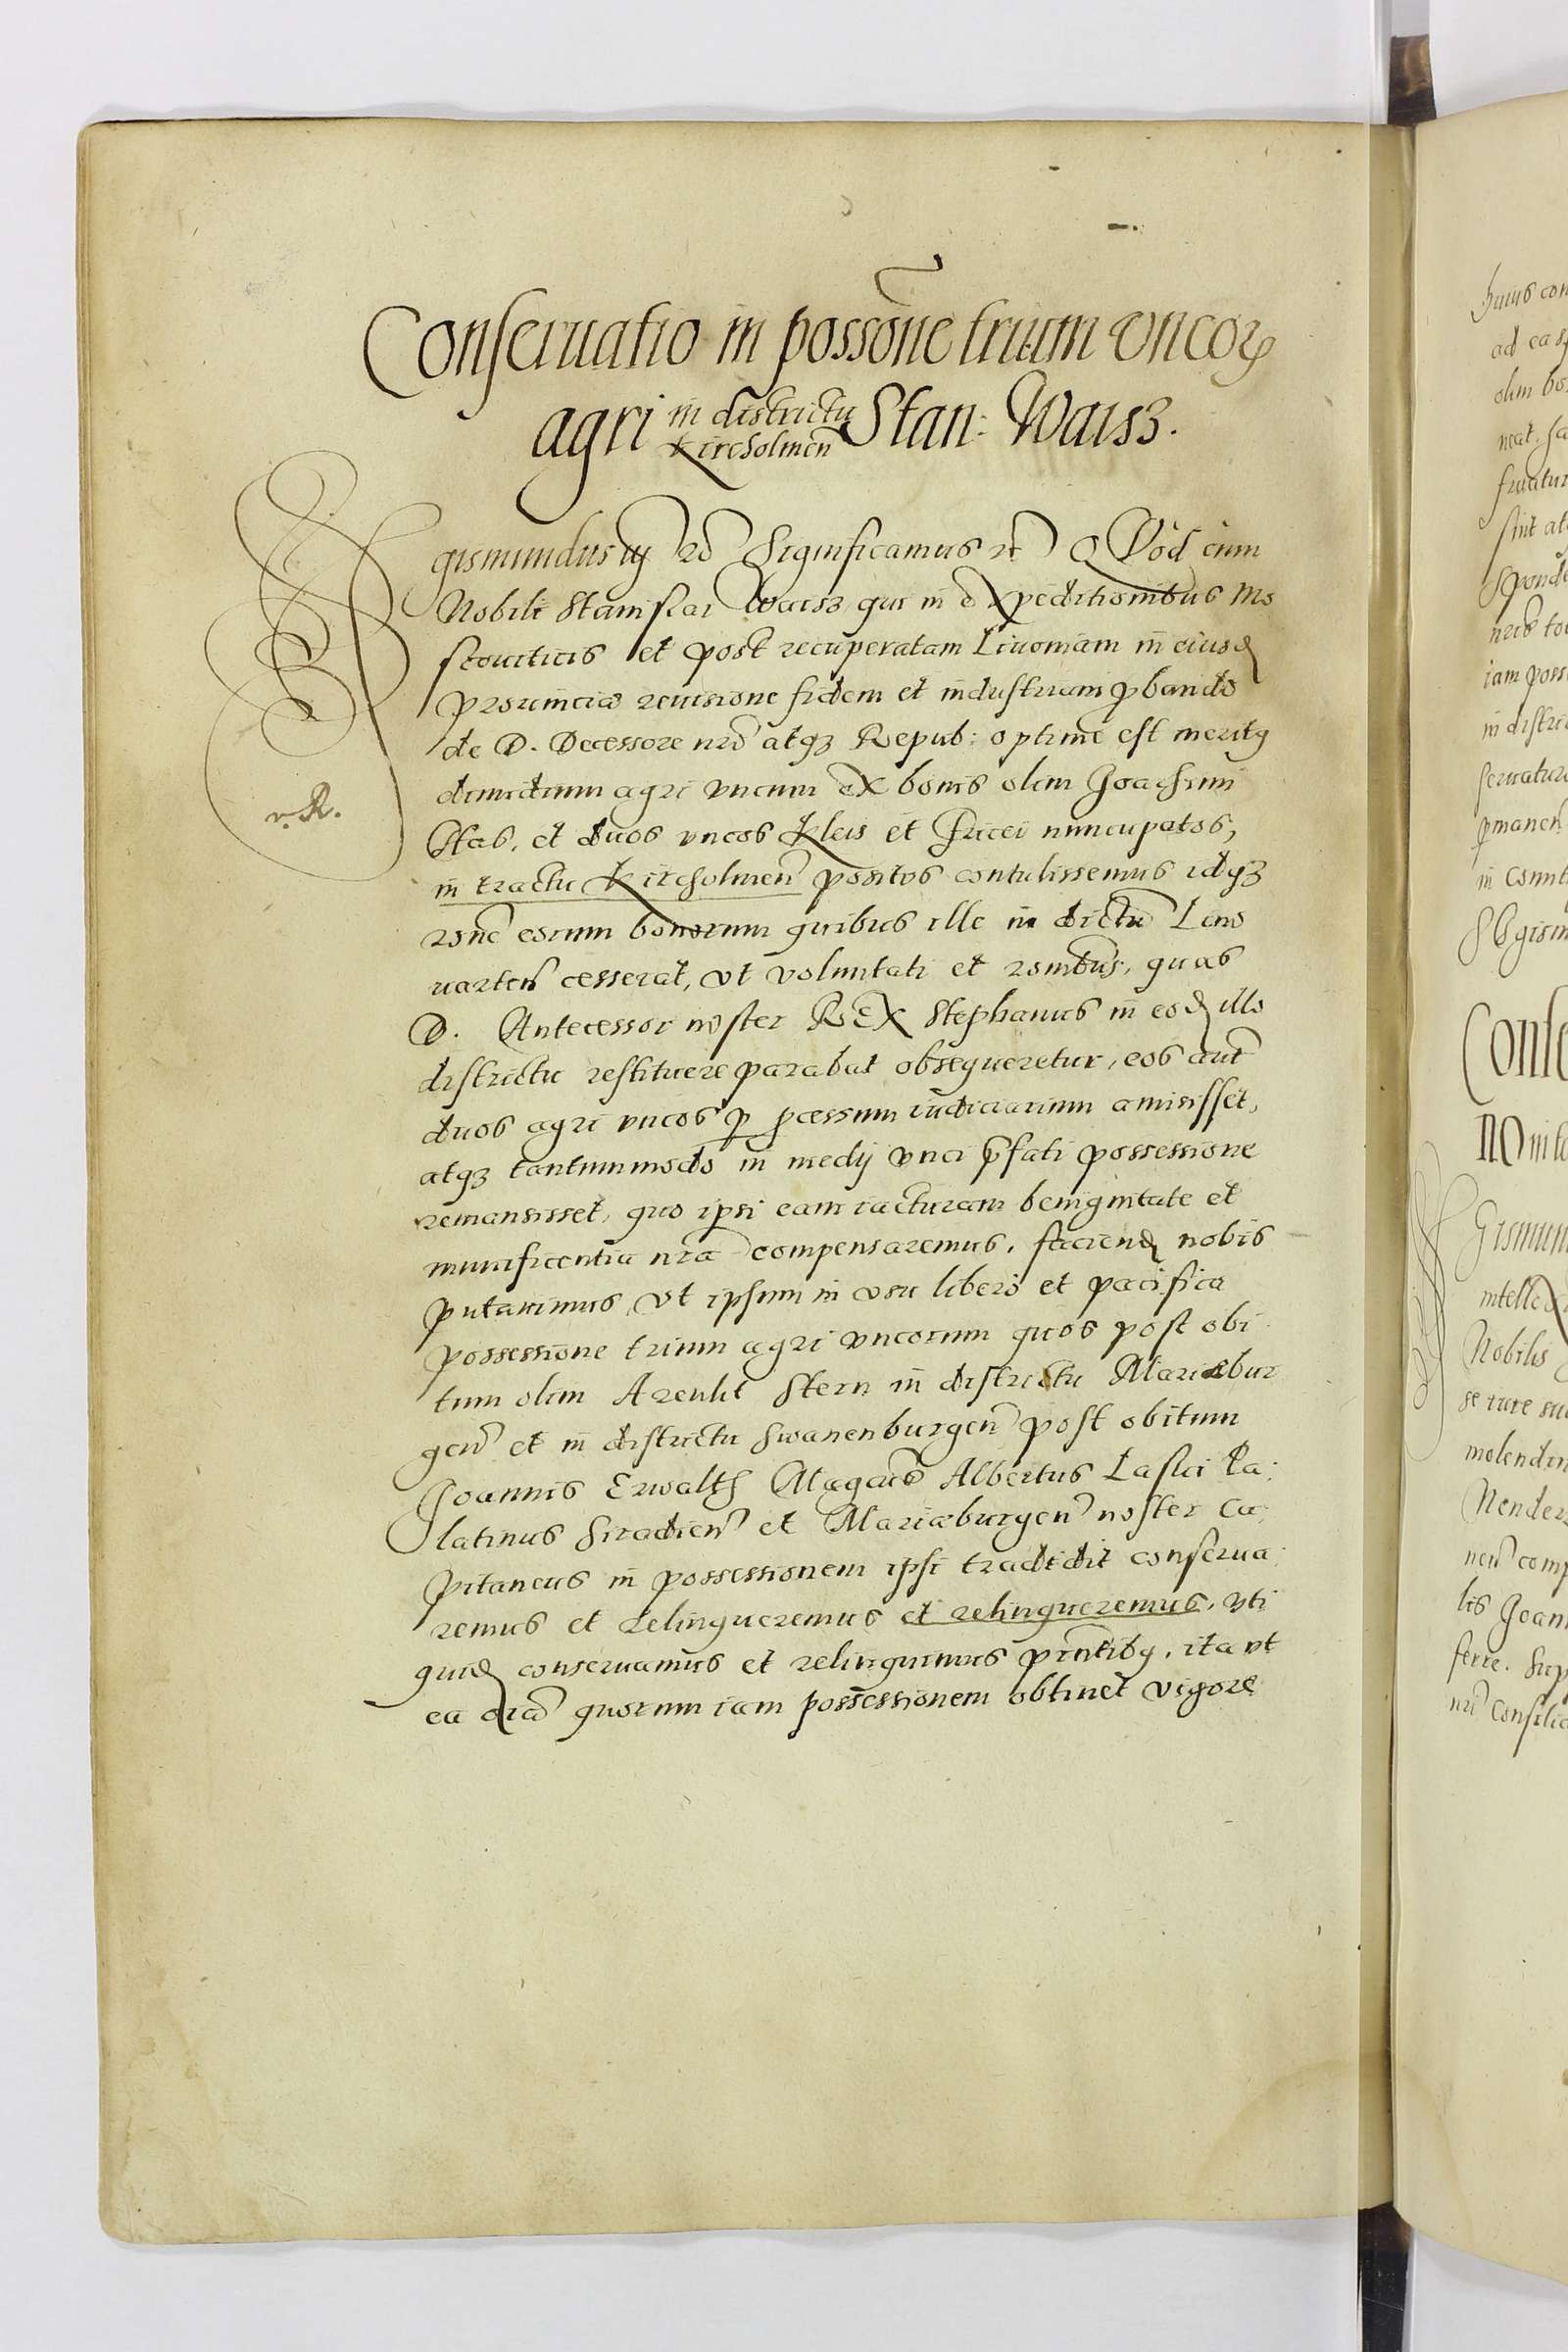 Conseruatio in possone trium vncoꝝ
agri in districtu Kircholmen Stan: Waisz.
Sigismundus iij etc Significamus etc Quod cum
Nobili Stanislai Waisz qui in expeditionibus Mo
scouiticis et post recuperatam Liuoniam in eiusd
prouinciae reuisione fidem et industriam pbando
de D. Decessore nro atqз Repub: optime est meritꝯ
dimidium agri vncum ex bonis olim Joachimi
Stab, et duos vncos Kleis et Fricei nuncupatos,
in tractu Kircholmen positos contulissemus idqз
rone eorum bonorum quibus ille in dictu Leno
uarten cesserat, vt voluntati et ronibus, quas
D. Antecessor noster REX Stephanus in eod illo
districtu restituere parabat obsequeretur, eos aut
duos agri vncos p pcessum iudiciarium amisisset,
atqз tantummodo in medij vnci pfati possessione
remansisset, quo ipsi eam iacturam benignitate et
munificentia nra compensaremus, faciend nobis
putauimus, vt ipsum in vsu libero et pacifica
possessione trium agri vncorum quos post obi
tum olim Arenht Stern in districtu Mariæbur
gen et in districtu Swanenburgen post obitum
Joannis Erwalth Magcus Albertus Laski Pa:
latinus Siradien et Mariæburgen noster Ca:
pitaneus in possessionem ipsi tradidit conserua:
remus et relinqueremus et relinqueremus, vti
quid conseruamus et relinquimus pntibꝯ, ita vt
ea oia quorum iam possessionem obtinet vigore
v. R.
huius con
ad eas
olim bo
neat, fa
fruatur
sint at
sponde
nris to
iam poss
in distri
seruatur
pmanen
in Comit
Sigism
Conse
no
Gismun
intellex
Nobilis
se iure su
molendin
Nender
nen comp
lis Joann
ferre. Sup
nri Consilia